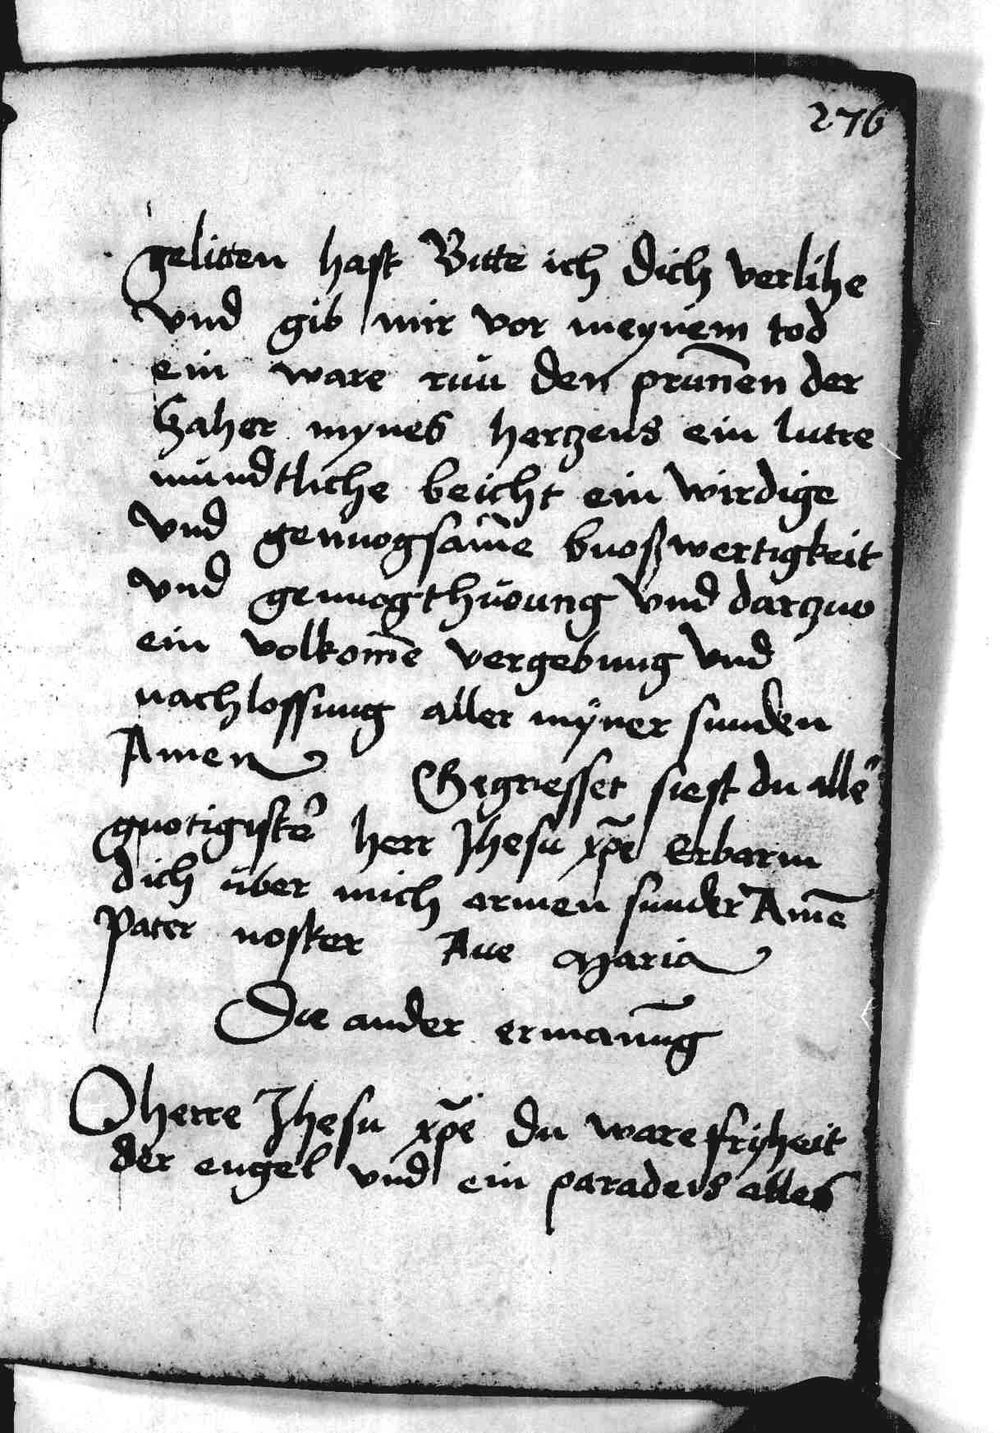 276
gelitten hast Bitte ich dich verlihe
vnd gib mir vor meynem tod
ein ware rüu den prun̄en der
Zaher mynes hertzens ein lutre
mündtliche beicht ein wirdige
vnd genuogsam̄e buoßwertigkeit
vnd genuogthüoung vnd dartzuo
ein volkom̄e vergebung vnd
nachlossung aller mÿner sunden
Amen Gegruesset siest du alle᷑
guotigiste᷑ herr Jhesu xp̄e Erbarm
dich über mich armen sunder Amē
Pater noster Aue Maria
Die ander ermanūg
O herre Jhesu xp̄e du ware fryheit
der engel vnd ein paradeis alles